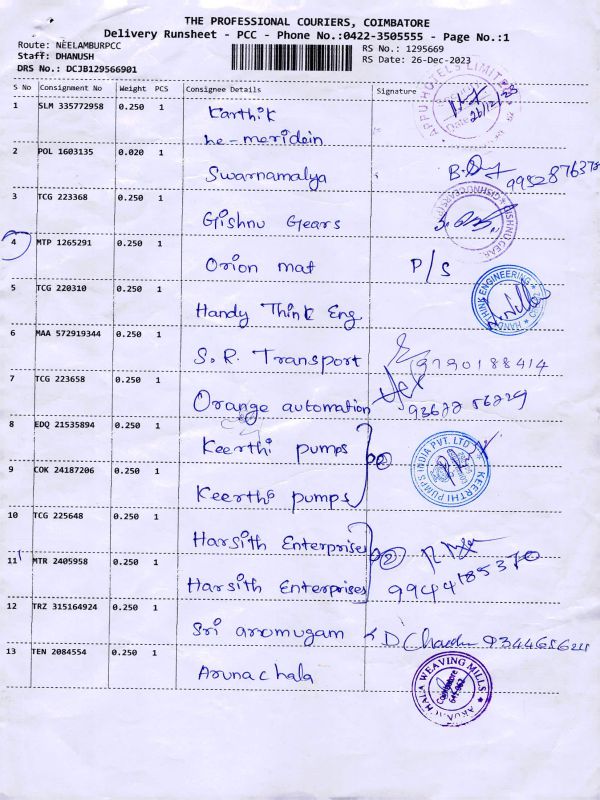 THE PROFESSIONAL COURIERS, COIMBATORE
Delivery Runsheet - PCC - Phone No.:0422-3505555 - Page No.:1
Route: NEELAMBURPCC
Staff: DHANUSH
DRS No.: DCJB129566901
RS No.: 1295669
RS Date: 26-Dec-2023
S No Consignment No Weight PCS Consignee Details Signature
1 SLM 335772958 0.250 1 Karthik
he-meridein
APPU HOTELS LIMITED
26/12/23
2 POL 1603135 0.020 1 Swarnamalya
3 TCG 223368 0.250 1 Gishnu Gears
4 MTP 1265291 0.250 1 Orion mat P/S
5 TCG 220310 0.250 1 Handy Think Eng.
HANDY THINK ENGINEERING
6 MAA 572919344 0.250 1 S.R. Transport 9790188414
7 TCG 223658 0.250 1 Orange automation
8 EDQ 21535894 0.250 1 Keerthi pumps
KEERTHI PUMPS INDIA PVT. LTD
9 COK 24187206 0.250 1 Keerthi pumps 2
10 TCG 225648 0.250 1 Harsith Enterprises
11 MTR 2405958 0.250 1 Harsith Enterprises 2 9944185370
12 TRZ 315164924 0.250 1 Sri aromugam
13 TEN 2084554 0.250 1 Arunachala
ARUNACHALA WEAVING MILLS
Coimbatore
641 062